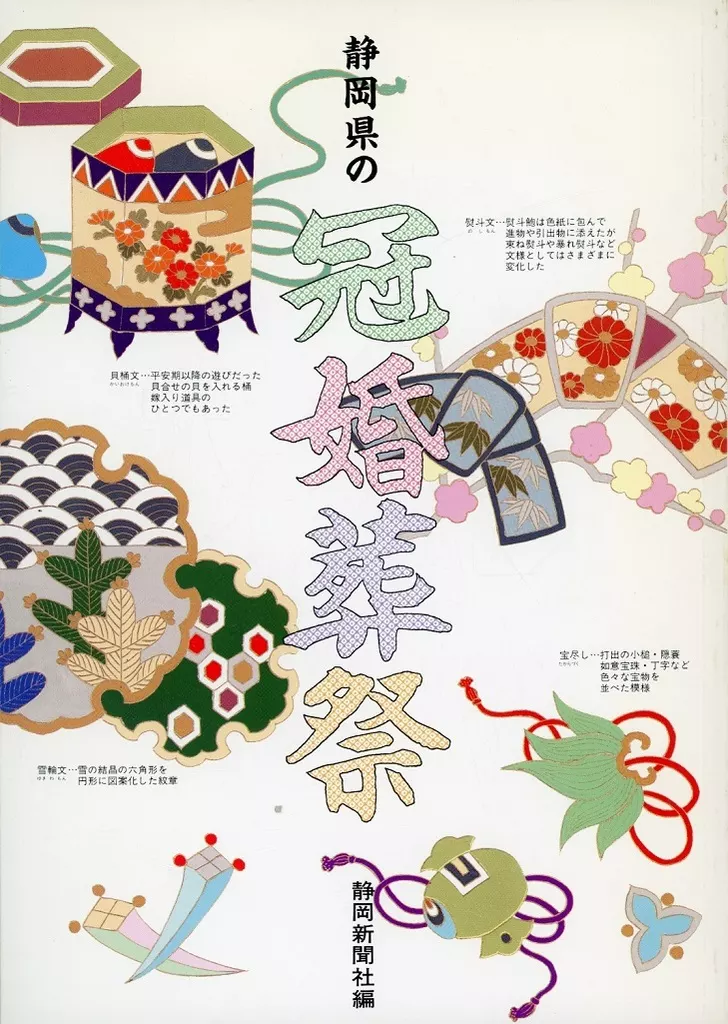 静岡県の
冠婚葬祭
熨斗文…熨斗鮑は色紙に包んで
のしもん
進物や引出物に添えたが
束ね熨斗や暴れ熨斗など
文様としてはさまざまに
変化した
貝桶文…平安期以降の遊びだった
かいおけもん
貝合せの貝を入れる桶
嫁入り道具の
ひとつでもあった
宝尽し…打出の小槌・隠蓑
たからづくし
如意宝珠・丁字など
色々な宝物を
並べた模様
雪輪文…雪の結晶の六角形を
ゆきわもん
円形に図案化した紋章
静岡新聞社編